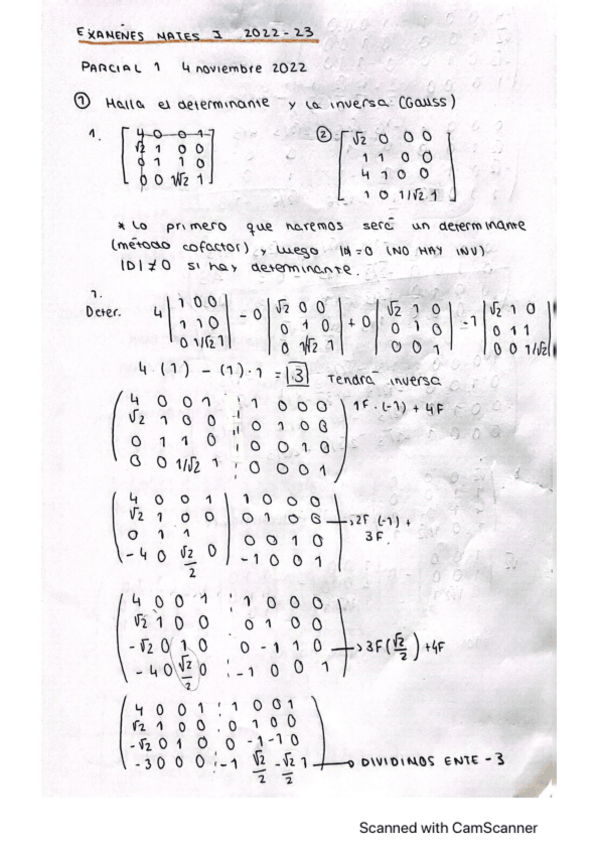 EXAMENES MATES I 2022-23
PARCIAL 1 4 noviembre 2022
① Halla el determinante y la inversa (Gauss)
1. ②
4 0 0 1 √2 0 0 0
√2 1 0 0 1 1 0 0
0 1 1 0 4 1 0 0
0 0 1/√2 1 1 0 1/√2 1
* Lo primero que haremos será un determinante
(método cofactor) y luego |d|=0 (NO HAY INV)
|D|≠0 si hay determinante.
1.
Deter. 4 |1 0 0| - 0 |√2 0 0| + 0 |√2 1 0| - 1 |√2 1 0|
|1 1 0| |0 1 0| |0 1 0| |0 1 1|
|0 1/√2 1| |0 1/√2 1| |0 0 1| |0 0 1/√2|
4 · (1) - (1) · 1 = 3 Tendrá inversa
4 0 0 1 1 0 0 0 1F · (-1) + 4F
√2 1 0 0 0 1 0 0
0 1 1 0 0 0 1 0
0 0 1/√2 1 0 0 0 1
4 0 0 1 1 0 0 0
√2 1 0 0 0 1 0 0 → 2F (-1) +
0 1 1 0 0 1 0 3F.
-4 0 √2/2 0 -1 0 0 1
4 0 0 1 1 0 0 0
√2 1 0 0 0 1 0 0
-√2 0 1 0 0 -1 1 0 → 3F (√2/2) + 4F
-4 0 √2/2 0 -1 0 0 1
4 0 0 1 1 0 0 1
√2 1 0 0 0 1 0 0
-√2 0 1 0 0 -1 -1 0
-3 0 0 0 -1 √2/2 -√2/2 1 → DIVIDIMOS ENTE -3
Scanned with CamScanner